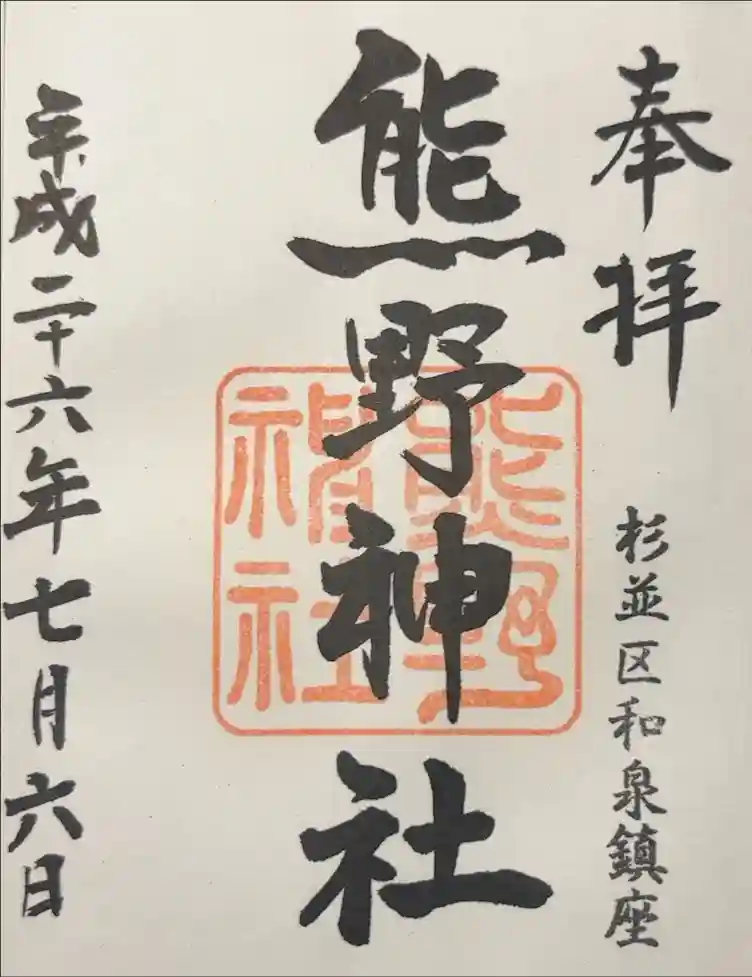 奉拝
杉並区和泉鎮座
熊野神社
熊野神社
平成二十六年七月六日